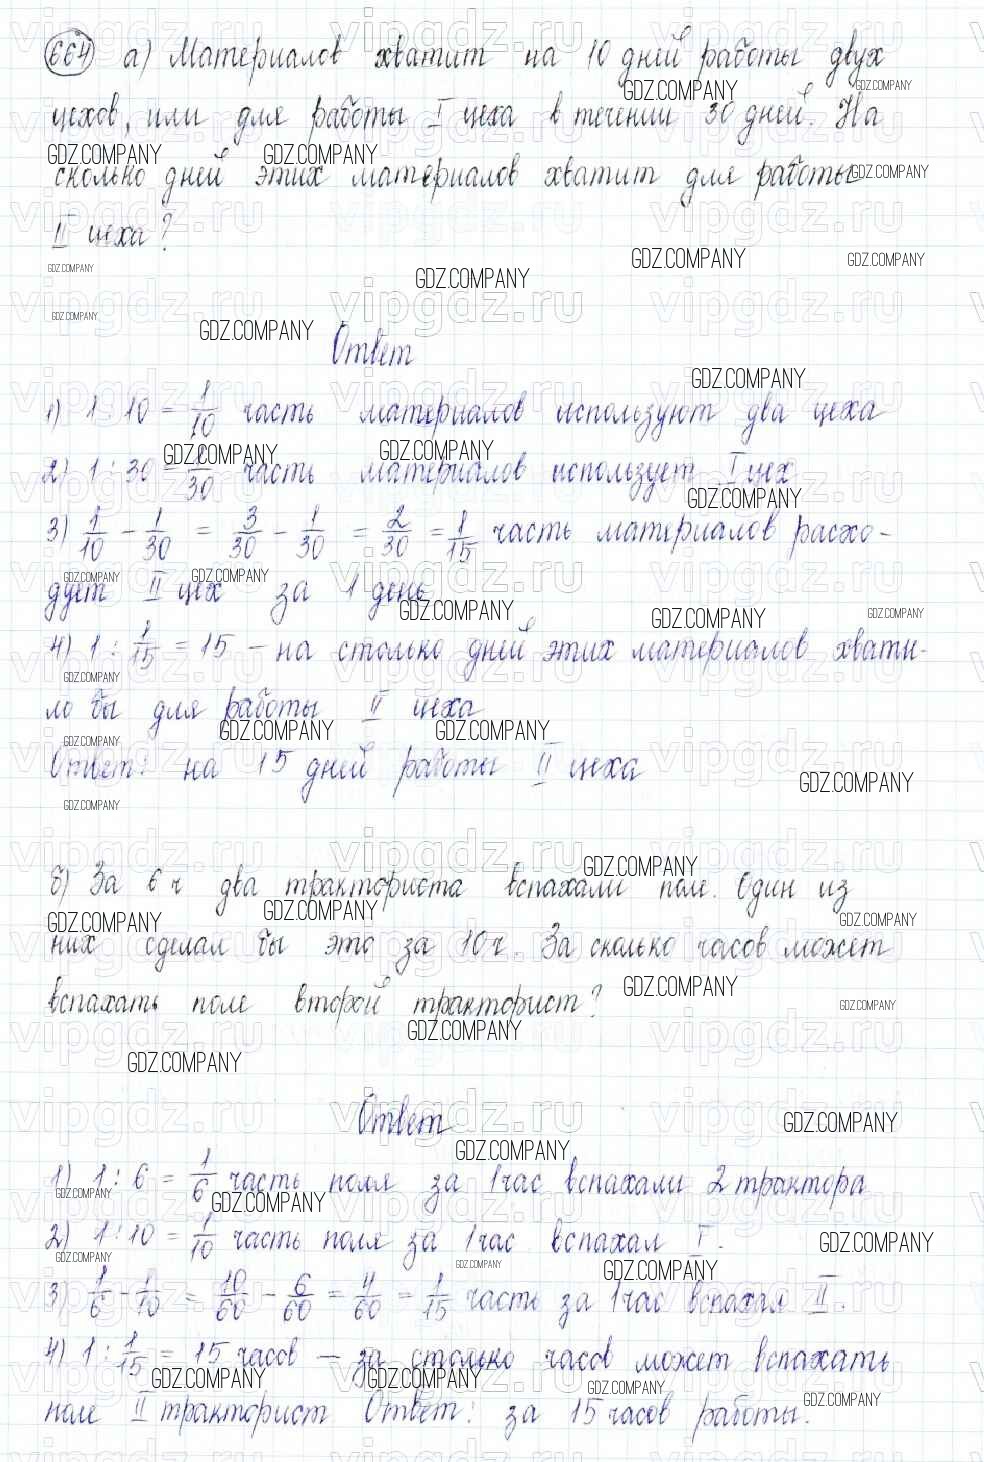 664 а) Материалов хватит на 10 дней работы двух
цехов, или для работы I цеха в течении 30 дней. На
сколько дней этих материалов хватит для работы
II цеха?
Ответ
1) 1 : 10 = 1/10 часть материалов используют два цеха
2) 1 : 30 = 1/30 часть материалов использует I цех
3) 1/10 - 1/30 = 3/30 - 1/30 = 2/30 = 1/15 часть материалов расхо-
дует II цех за 1 день
4) 1 : 1/15 = 15 - на столько дней этих материалов хвати-
ло бы для работы II цеха
Ответ: на 15 дней работы II цеха
б) За 6 ч два тракториста вспахали поле. Один из
них сделал бы это за 10 ч. За сколько часов может
вспахать поле второй тракторист?
Ответ
1) 1 : 6 = 1/6 часть поля за 1 час вспахали 2 трактора
2) 1 : 10 = 1/10 часть поля за 1 час вспахал I.
3) 1/6 - 1/10 = 10/60 - 6/60 = 4/60 = 1/15 часть за 1 час вспахал II.
4) 1 : 1/15 = 15 часов - за столько часов может вспахать
поле II тракторист Ответ: за 15 часов работы.
GDZ.COMPANY
vipgdz.ru